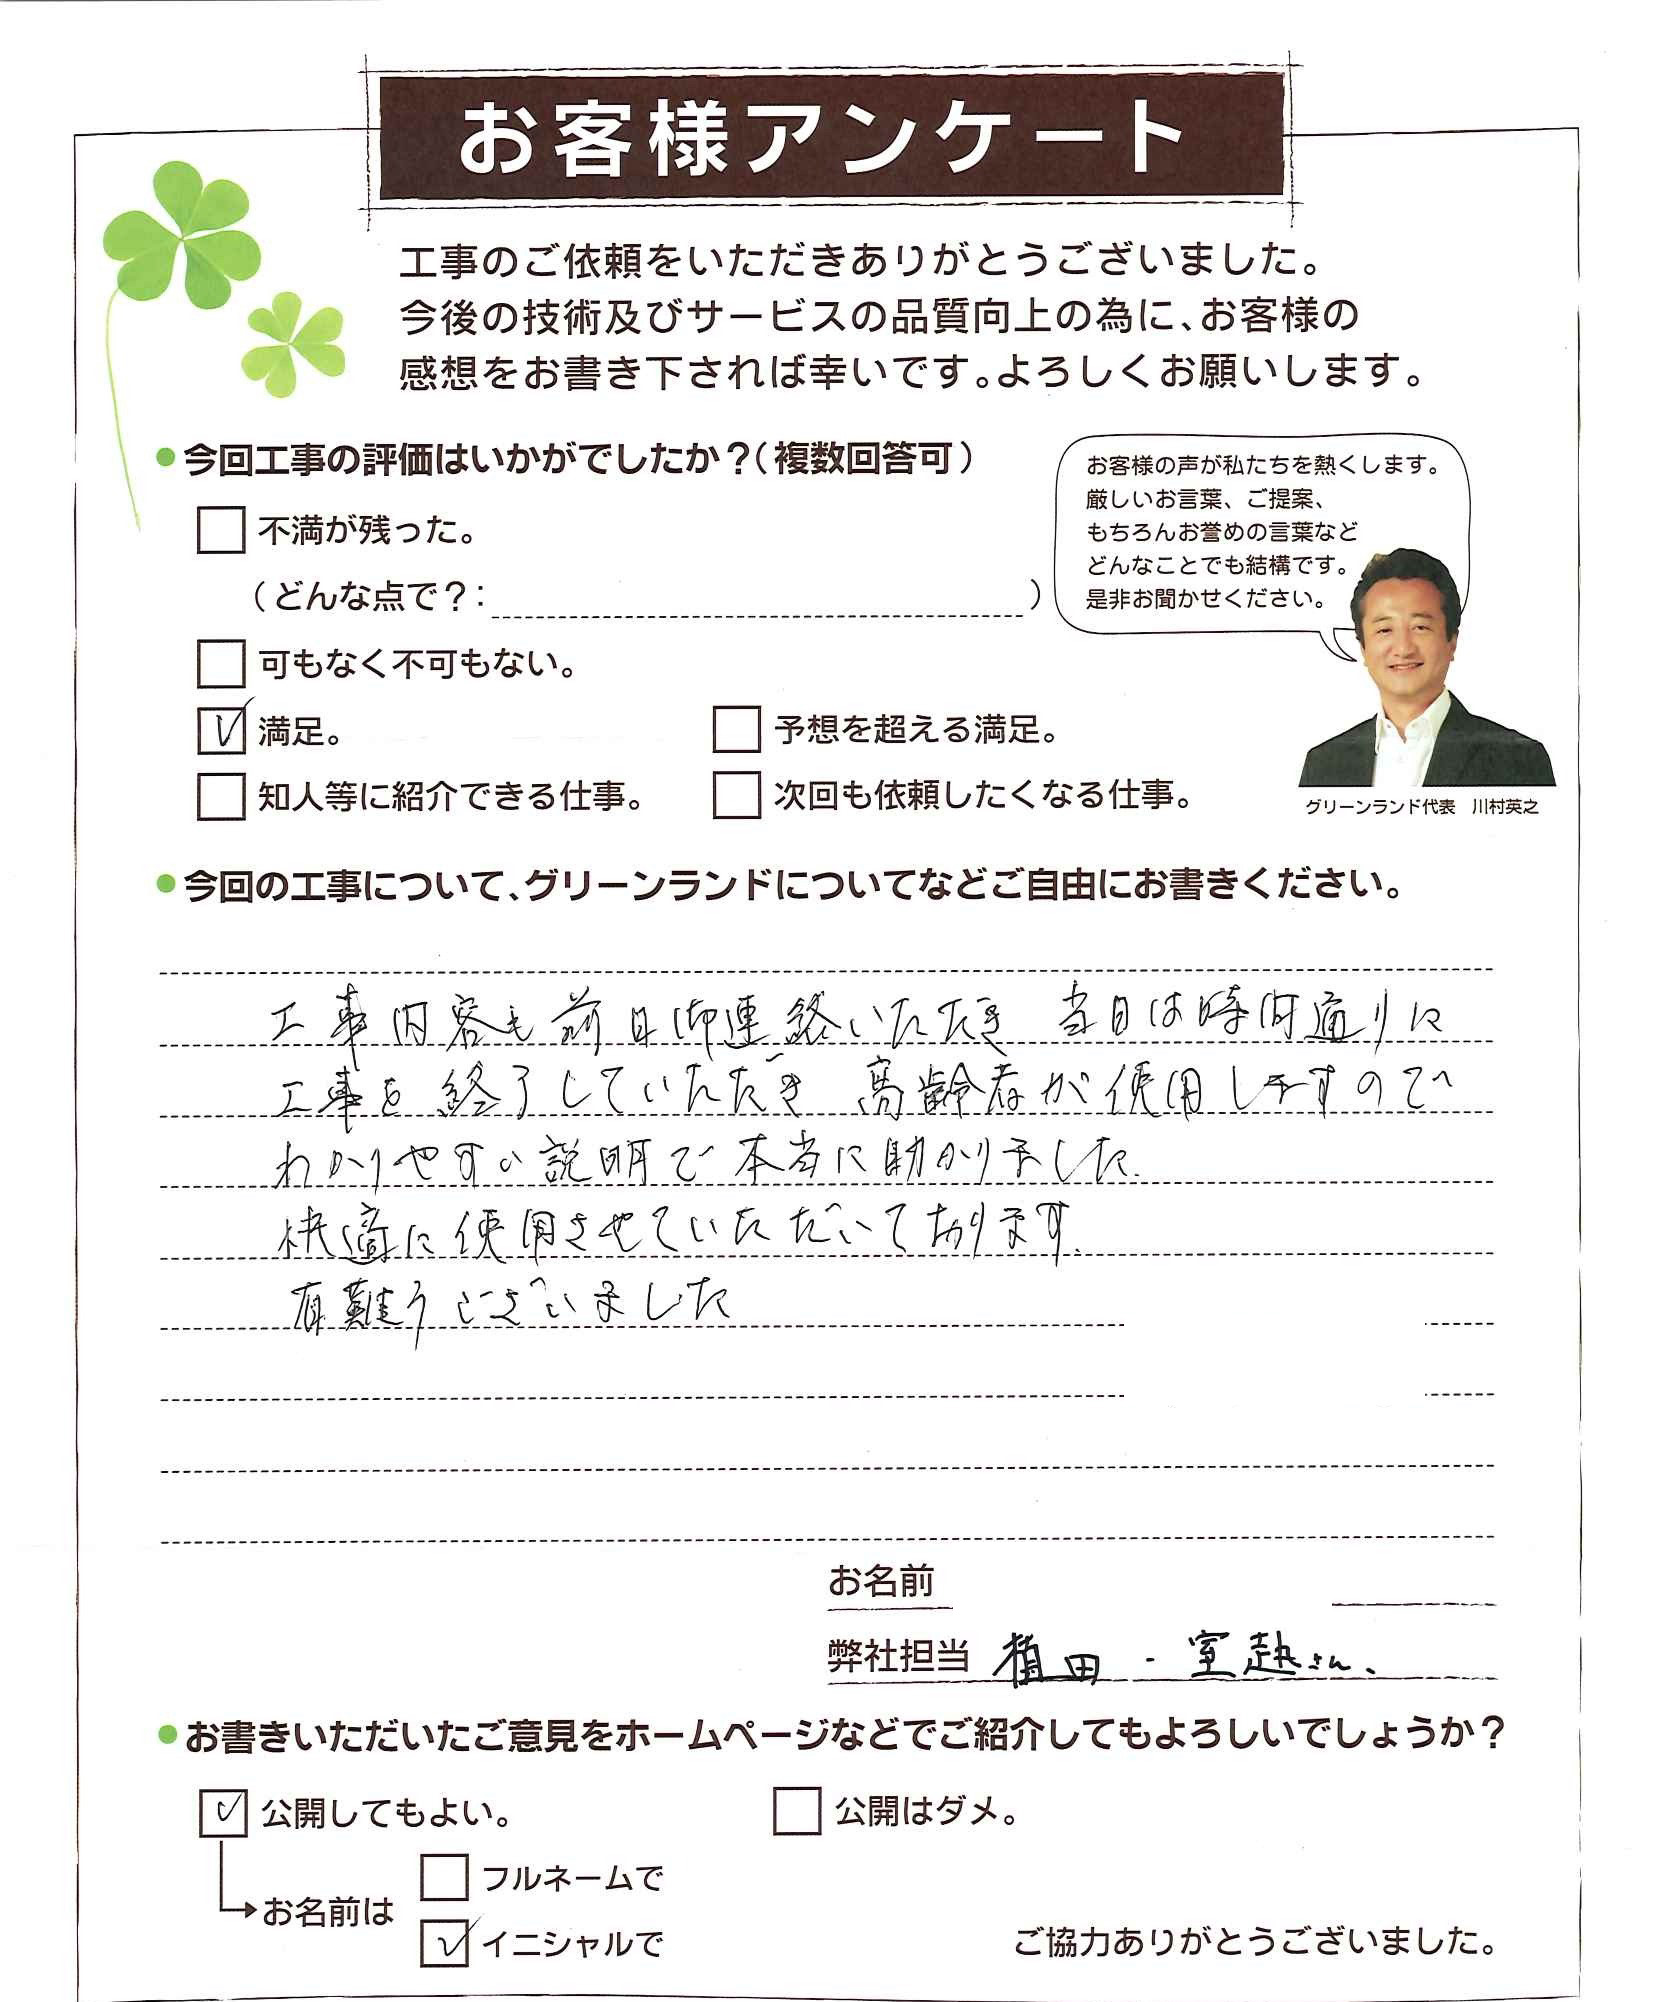 お客様アンケート
工事のご依頼をいただきありがとうございました。
今後の技術及びサービスの品質向上の為に、お客様の
感想をお書き下されば幸いです。よろしくお願いします。
●今回工事の評価はいかがでしたか？（複数回答可）
お客様の声が私たちを熱くします。
厳しいお言葉、ご提案、
もちろんお誉めの言葉など
どんなことでも結構です。
是非お聞かせください。
不満が残った。
（どんな点で？：　）
可もなく不可もない。
満足。
予想を超える満足。
知人等に紹介できる仕事。
次回も依頼したくなる仕事。
グリーンランド代表　川村英之
●今回の工事について、グリーンランドについてなどご自由にお書きください。
工事内容も前日御連絡いただき 当日は時間通りに
工事を終了していただき 高齢者が使用しますので
わかりやすい説明で本当に助かりました.
快適に使用させていただいております.
有難うございました
お名前
弊社担当 植田・室越さん、
●お書きいただいたご意見をホームページなどでご紹介してもよろしいでしょうか？
公開してもよい。
公開はダメ。
お名前は
フルネームで
イニシャルで
ご協力ありがとうございました。